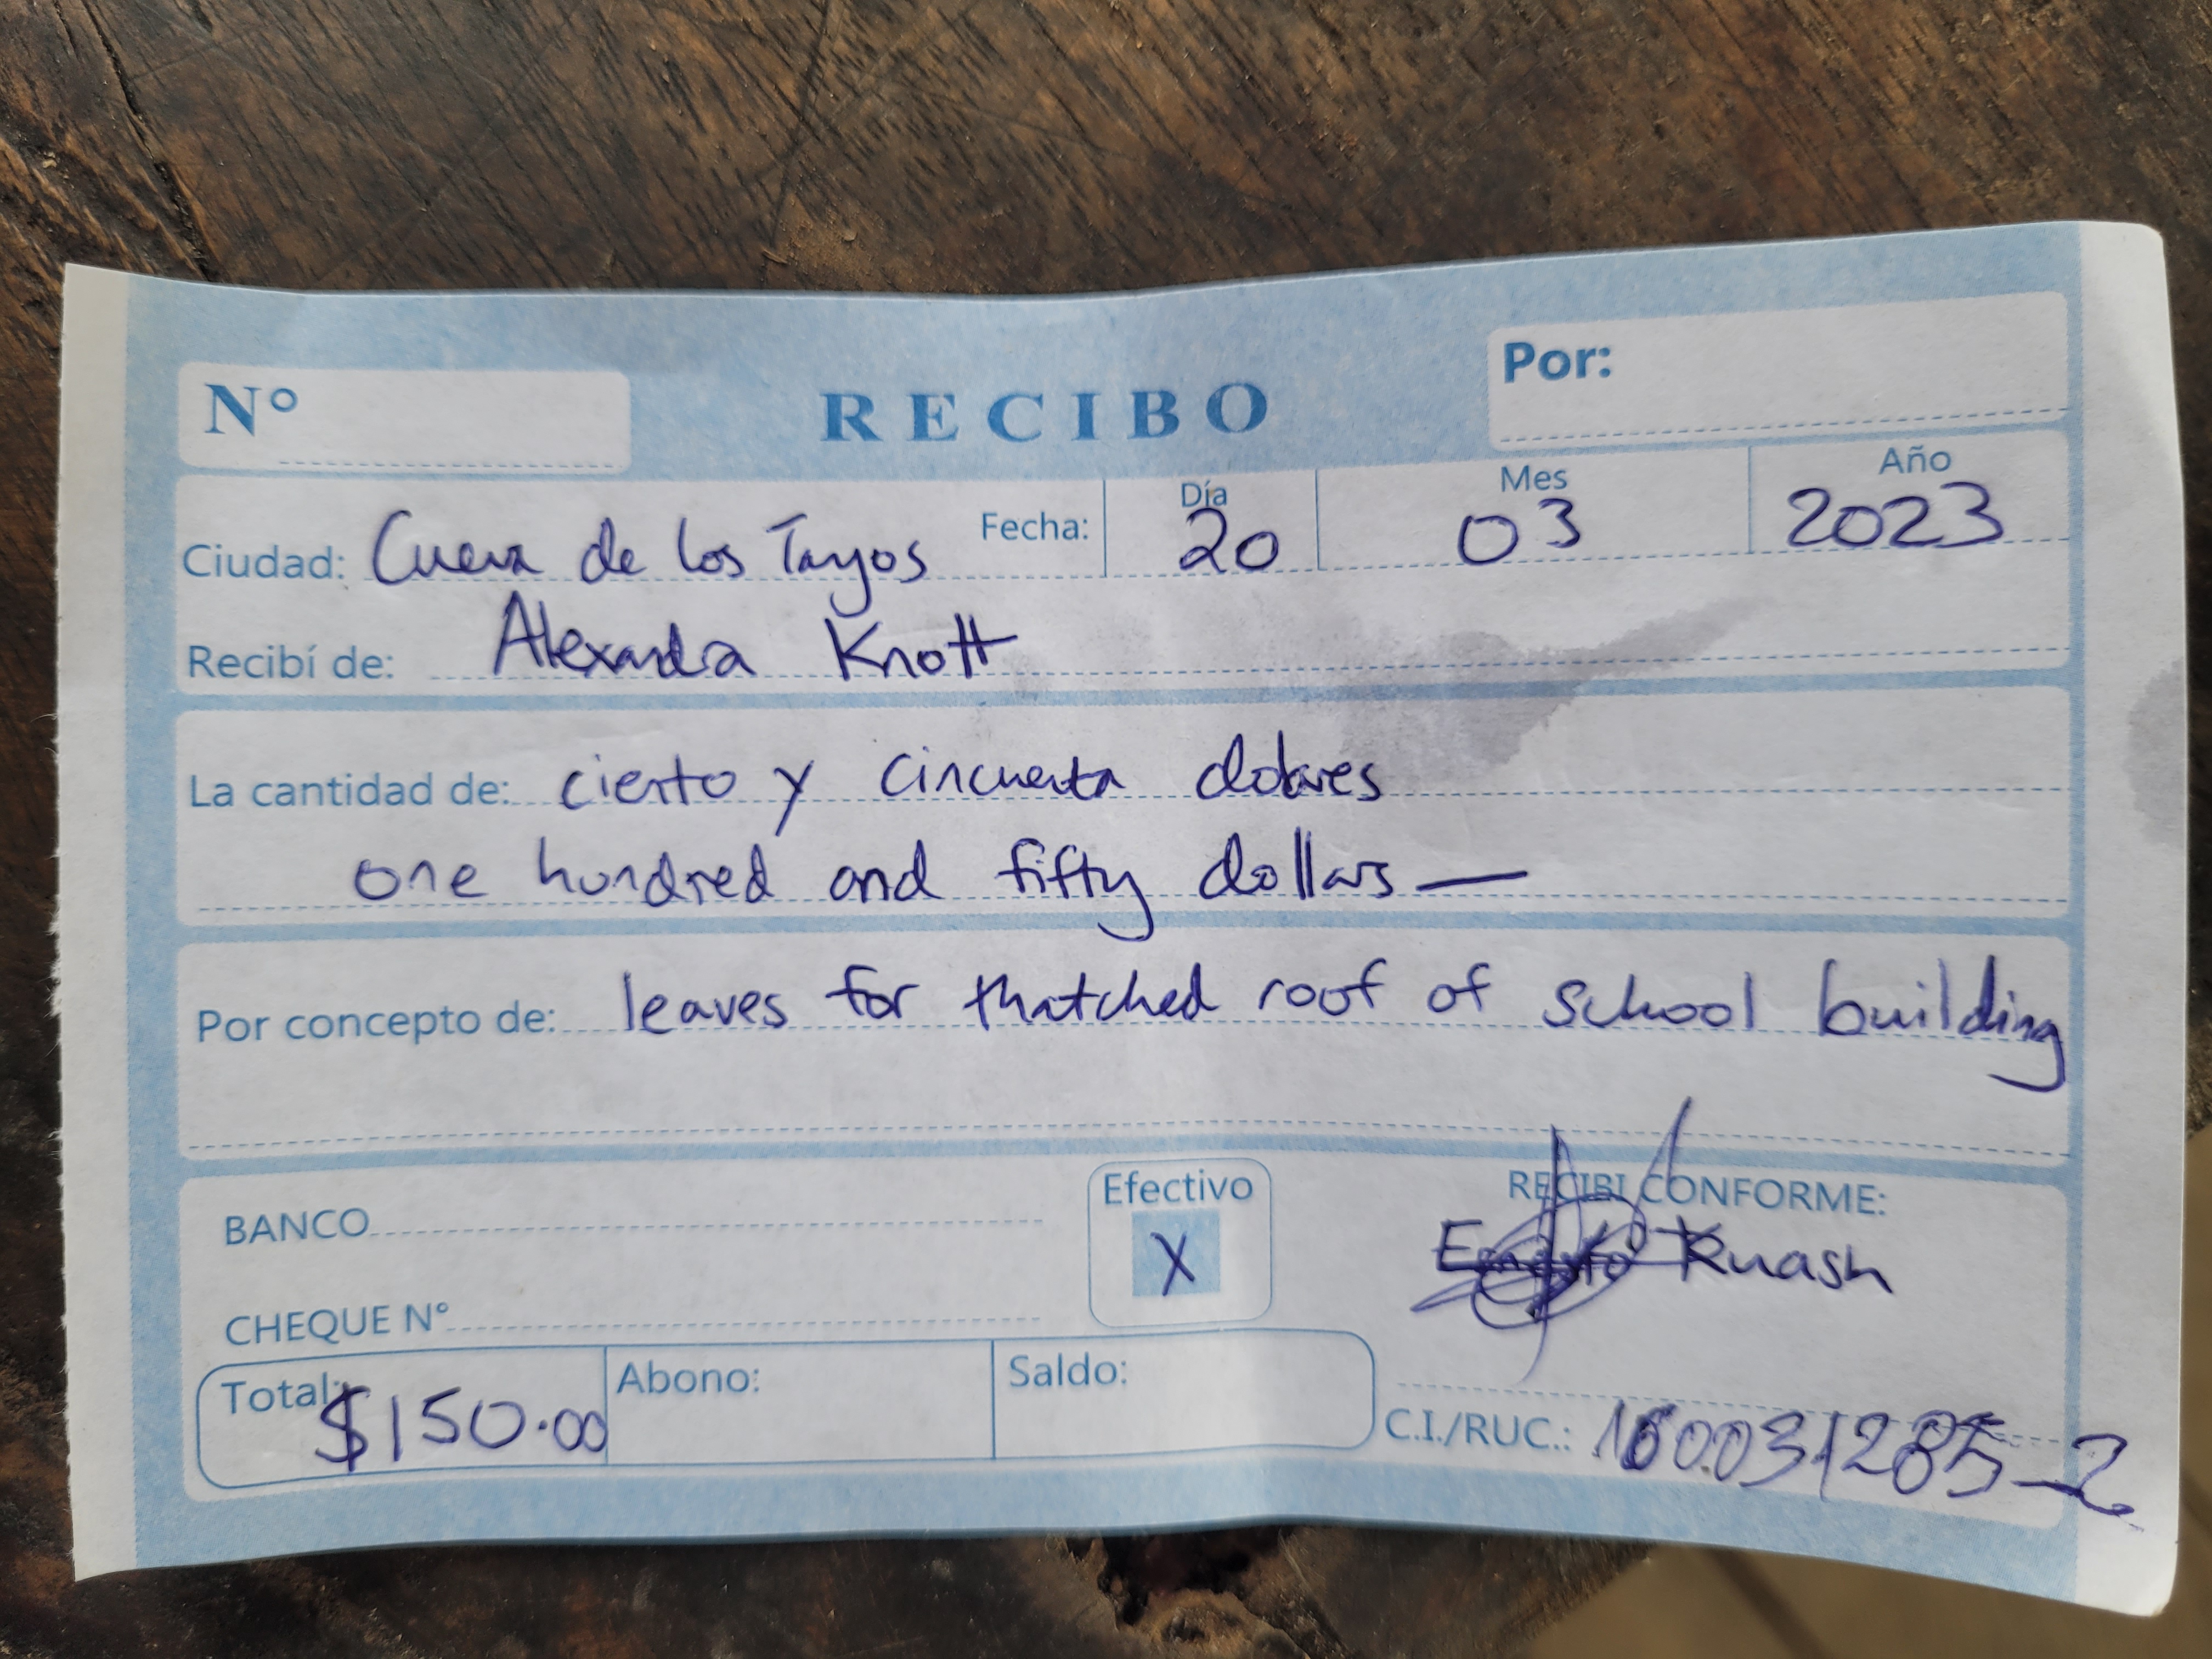 Nº
RECIBO
Por:
Ciudad: Cueva de los Tayos Fecha: Día 20 Mes 03 Año 2023
Recibí de: Alexandra Knott
La cantidad de: ciento y cincuenta dolares
one hundred and fifty dollars —
Por concepto de: leaves for thatched roof of school building
BANCO
Efectivo X
RECIBI CONFORME:
Kuash
CHEQUE Nº
Total: $150.00 Abono: Saldo:
C.I./RUC.: